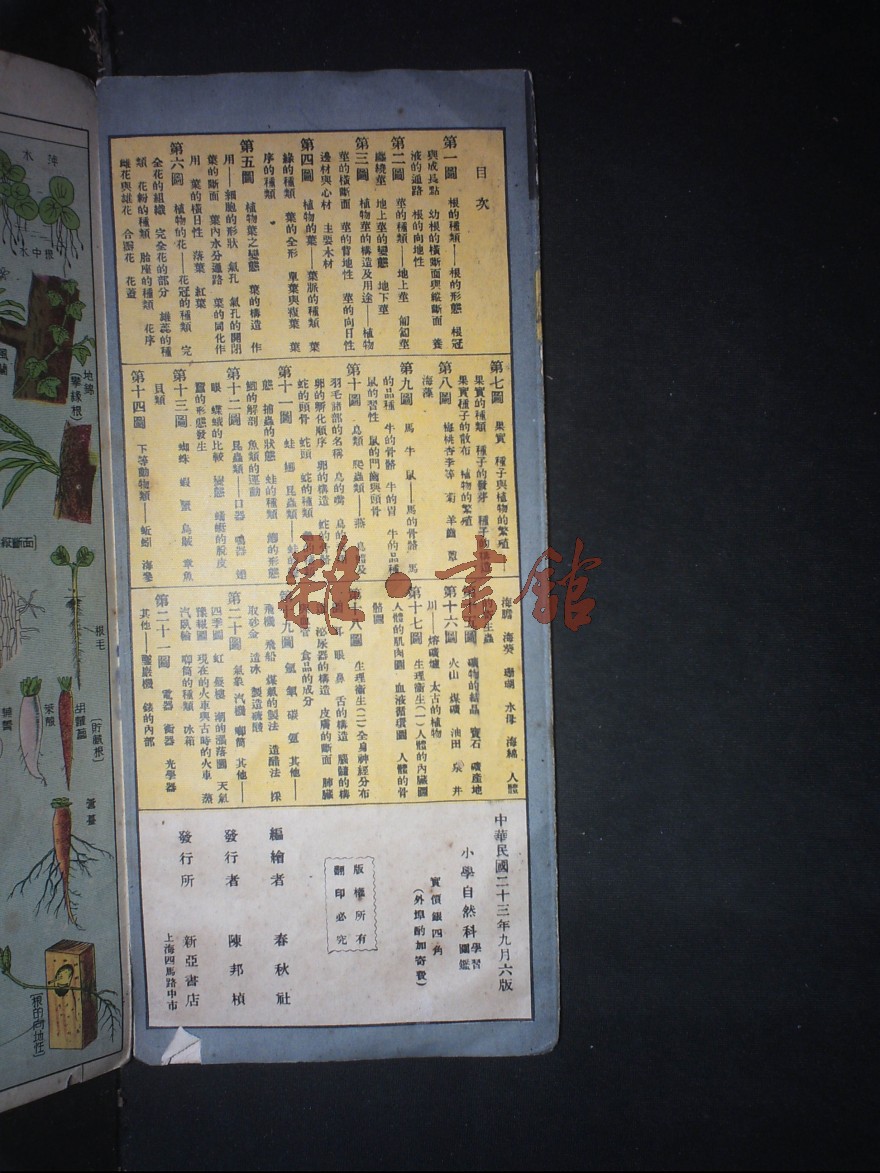 目次
第一圖 根的種類——根的形態 根冠
與成長點 幼根的橫斷面與縱斷面 養
液的通路 根的向地性
第二圖 莖的種類——地上莖 匍匐莖
纏繞莖 地上莖的變態 地下莖
第三圖 植物莖的構造及用途——植物
莖的橫斷面 莖的背地性 莖的向日性
邊材與心材 主要木材
第四圖 植物的葉——葉脈的種類 葉
緣的種類 葉的全形 單葉與複葉 葉
序的種類
第五圖 植物葉之變態 葉的構造 作
用——細胞的形狀 氣孔 氣孔的開閉
葉的斷面 葉內水分通路 葉的同化作
用 葉的橫日性 落葉 紅葉
第六圖 植物的花——花冠的種類 完
全花的組織 完全花的部分 雄蕊的種
類 花粉的種類 胎座的種類 花序
雌花與雄花 合瓣花 花蓋
第七圖 果實 種子與植物的繁殖
果實的種類 種子的發芽 種子的構造
果實種子的散布 植物的繁殖
第八圖 梅桃杏李等 菊 羊齒 蕈
海藻
第九圖 馬 牛 鼠——馬的骨骼 馬
的品種 牛的骨骼 牛的胃 牛的品種
鼠的習性 鼠的門齒與頭骨
第十圖 鳥類 爬蟲類——燕
羽毛諸部的名稱 鳥的嘴
卵的孵化順序 卵的構造 蛇的骨骼
蛇的頭骨 蛇頭 蛇的種類
第十一圖 蛙 鯽 昆蟲類——蛙的
態 捕蟲的狀態 蛙的種類 鯽的形態
鯽的解剖 魚類的運動
第十二圖 昆蟲類——口器 鳴器 翅
眼 蝶蛾的比較 變態 蟠蜥的脫皮
蠶的形態發生
第十三圖 蜘蛛 蝦 蟹 烏賊 章魚
貝類
第十四圖 下等動物類——蚯蚓 海參
海膽 海葵 珊瑚 水母 海綿 人體
礦物的結晶 寶石 礦產地
第十六圖 火山 煤礦 油田 炭 井
川——熔礦爐 太古的植物
第十七圖 生理衞生(一)人體的內臟圖
人體的肌肉圖 血液循環圖 人體的骨
骼圖
生理衞生(二)全身神經分布
耳 眼 鼻 舌的構造 腦髓的構
泌尿器的構造 皮膚的斷面 肺臟
食品的成分
氫 氧 碳 氮 其他——
飛機 飛船 煤氣的製法 造醋法 採
取砂金 造冰 製造硫酸
第二十圖 氣象 汽機 唧筒 其他——
四季圖 虹 蜃樓 潮的漲落圖 天氣
豫報圖 現在的火車與古時的火車 蒸
汽臥輪 唧筒的種類 冰箱
第二十一圖 電器 衡器 光學器
其他——鑿巖機 錶的內部
中華民國二十三年九月六版
小學自然科學習圖鑑
實價銀四角
(外埠酌加寄費)
版權所有
翻印必究
編繪者 春秋社
發行者 陳邦楨
發行所 新亞書店
上海四馬路中市
雜·書館
水中根
地錦
(攀緣根)
根毛
胡蘿蔔
(貯藏根)
(根的向地性)